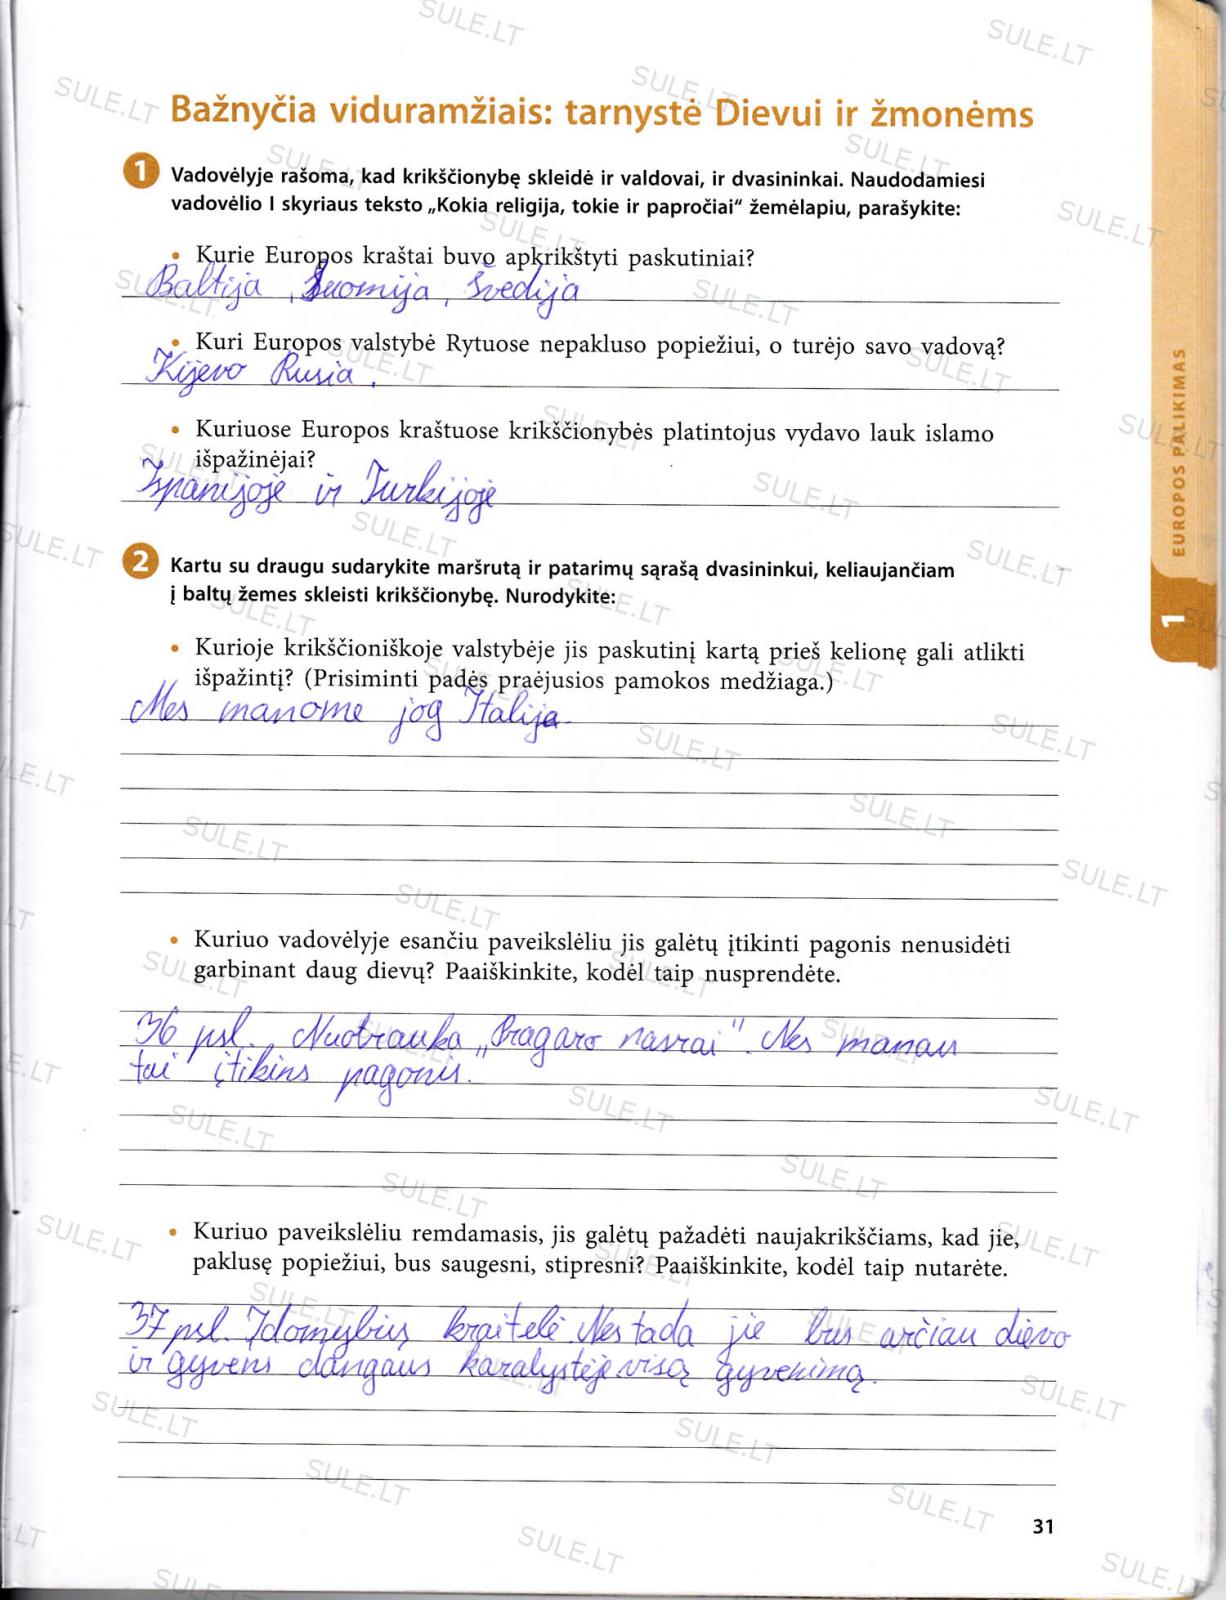 Bažnyčia viduramžiais: tarnystė Dievui ir žmonėms
1 Vadovėlyje rašoma, kad krikščionybę skleidė ir valdovai, ir dvasininkai. Naudodamiesi
vadovėlio I skyriaus teksto „Kokia religija, tokie ir papročiai“ žemėlapiu, parašykite:
• Kurie Europos kraštai buvo apkrikštyti paskutiniai?
Baltija, Suomija, Švedija
• Kuri Europos valstybė Rytuose nepakluso popiežiui, o turėjo savo vadovą?
Kijevo Rusia.
• Kuriuose Europos kraštuose krikščionybės platintojus vydavo lauk islamo
išpažinėjai?
Ispanijoje ir Turkijoje
2 Kartu su draugu sudarykite maršrutą ir patarimų sąrašą dvasininkui, keliaujančiam
į baltų žemes skleisti krikščionybę. Nurodykite:
• Kurioje krikščioniškoje valstybėje jis paskutinį kartą prieš kelionę gali atlikti
išpažintį? (Prisiminti padės praėjusios pamokos medžiaga.)
Mes manome jog Italija
• Kuriuo vadovėlyje esančiu paveikslėliu jis galėtų įtikinti pagonis nenusidėti
garbinant daug dievų? Paaiškinkite, kodėl taip nusprendėte.
36 psl. Nuotrauka „Pragaro nasrai“. Nes manau
tai įtikins pagonis.
• Kuriuo paveikslėliu remdamasis, jis galėtų pažadėti naujakrikščiams, kad jie,
paklusę popiežiui, bus saugesni, stipresni? Paaiškinkite, kodėl taip nutarėte.
37 psl. Įdomybių kraitelė. Nes tada jie bus arčiau dievo
ir gyvens dangaus karalystėje visą gyvenimą.
EUROPOS PALIKIMAS
1
31
SULE.LT